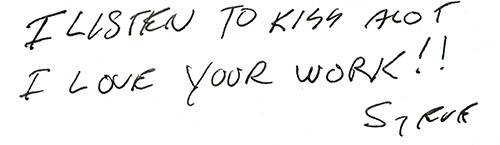 I LISTEN TO KISS ALOT
I LOVE YOUR WORK!!
STEVE